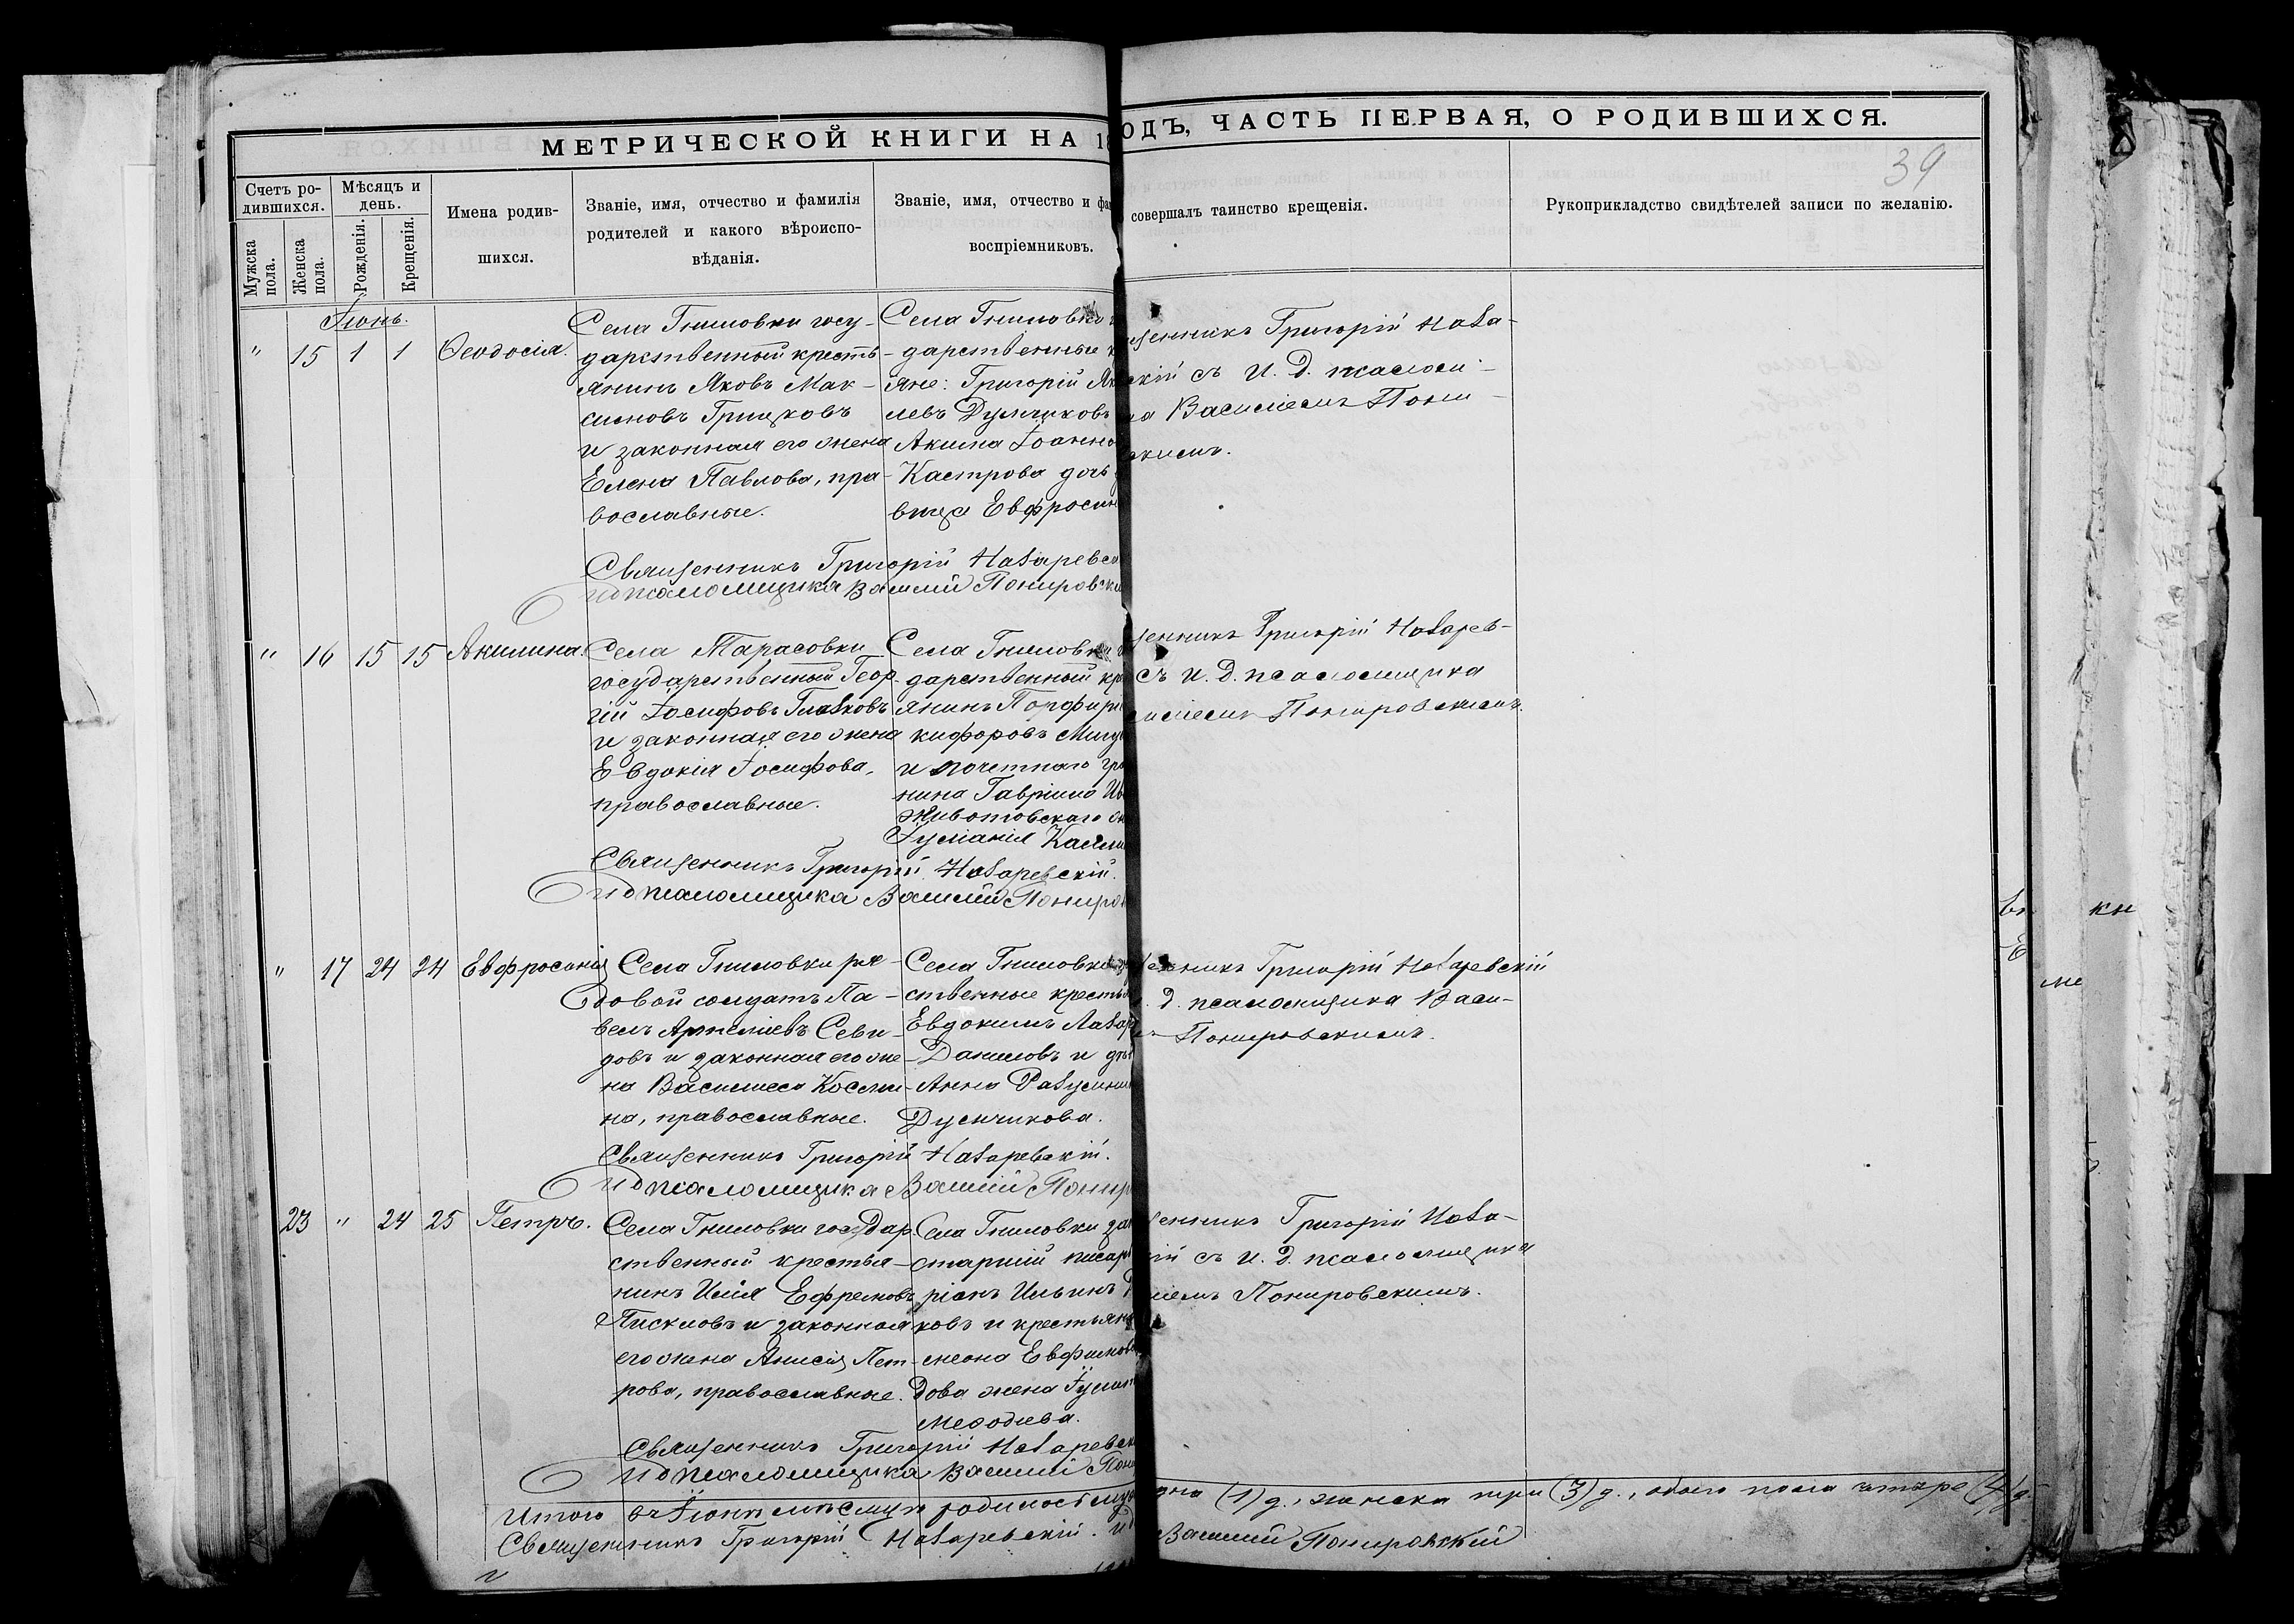 МЕТРИЧЕСКОЙ КНИГИ НА 18
ОДЪ, ЧАСТЬ ПЕРВАЯ, О РОДИВШИХСЯ.
39
Счетъ ро-
дившихся.
Мужска
пола.
Женска
пола.
Мѣсяцъ и
день.
Рожденія.
Крещенія.
Имена родив-
шихся.
Званіе, имя, отчество и фамилія
родителей и какого вѣроиспо-
вѣданія.
Званіе, имя, отчество и фа
воспріемниковъ.
совершалъ таинство крещенія.
Рукоприкладство свидѣтелей записи по желанію.
Іюнь.
" 15 1 1 Ѳеодосія.
Села Гниловки госу-
дарственный кресть-
янинъ Яковъ Мак-
симовъ Грицковъ
и законная его жена
Елена Павлова, пра-
вославные.
Села Гниловки
дарственные к
яне: Григорій Як
левъ Думчиковъ
Акима Іоанно
Кастрова дочь
вица Евфросин
щенникъ Григорій Наза-
скій съ И. Д. псаломщи-
ка Василіемъ Пони-
скимъ.
Священникъ Григорій Назаревск
И д псаломщика Василій Понировск
" 16 15 15 Акилина.
Села Тарасовки
государственный Геор-
гій Іосифовъ Глазковъ
и законная его жена
Евдокія Іосифова,
православные.
Села Гниловки
дарственный кре
янинъ Порфирі
кифоровъ
и почетнаго гра
нина Гавріила Ив
Животовскаго
Іуліанія
щенникъ Григорій Назарев-
съ И. Д. псаломщика
силіемъ Понировскимъ.
Священникъ Григорій Назаревскій.
И д псаломщика Василій Пониров
" 17 24 24 Евфросинія
Села Гниловки ря-
довой солдатъ Па-
велъ Севи-
довъ и законная его же-
на Василиса Косми-
на, православные.
Села Гниловки
ственные крестья
Евдокимъ Лазар
Даниловъ и дѣв
Анна
Думчикова.
щенникъ Григорій Назаревскій
Д. псаломщика Васи-
Понировскимъ.
Священникъ Григорій Назаревскій.
И д псаломщика Василій Понир
23 " 24 25 Петръ.
Села Гниловки государ-
ственный крестья-
нинъ Илія Ефремовъ
Пискловъ и законная
его жена Анисія Пет-
рова, православные.
Села Гниловки за
старшій писарь
ріанъ Ильинъ
ковъ и крестьян
меона Евфимов
дова жена Іулит
Меѳодіева.
щенникъ Григорій Наза-
кій съ И. Д. псаломщика
ліемъ Понировскимъ.
Священникъ Григорій Назаревск
И д псаломщика Василій Пони
Итого въ Іюнѣ мѣсяцѣ родилось муж
дна (1) д., женска три (3) д., обоего пола четыре (4) д.
Священникъ Григорій Назаревскій. И д
Василій Понировскій